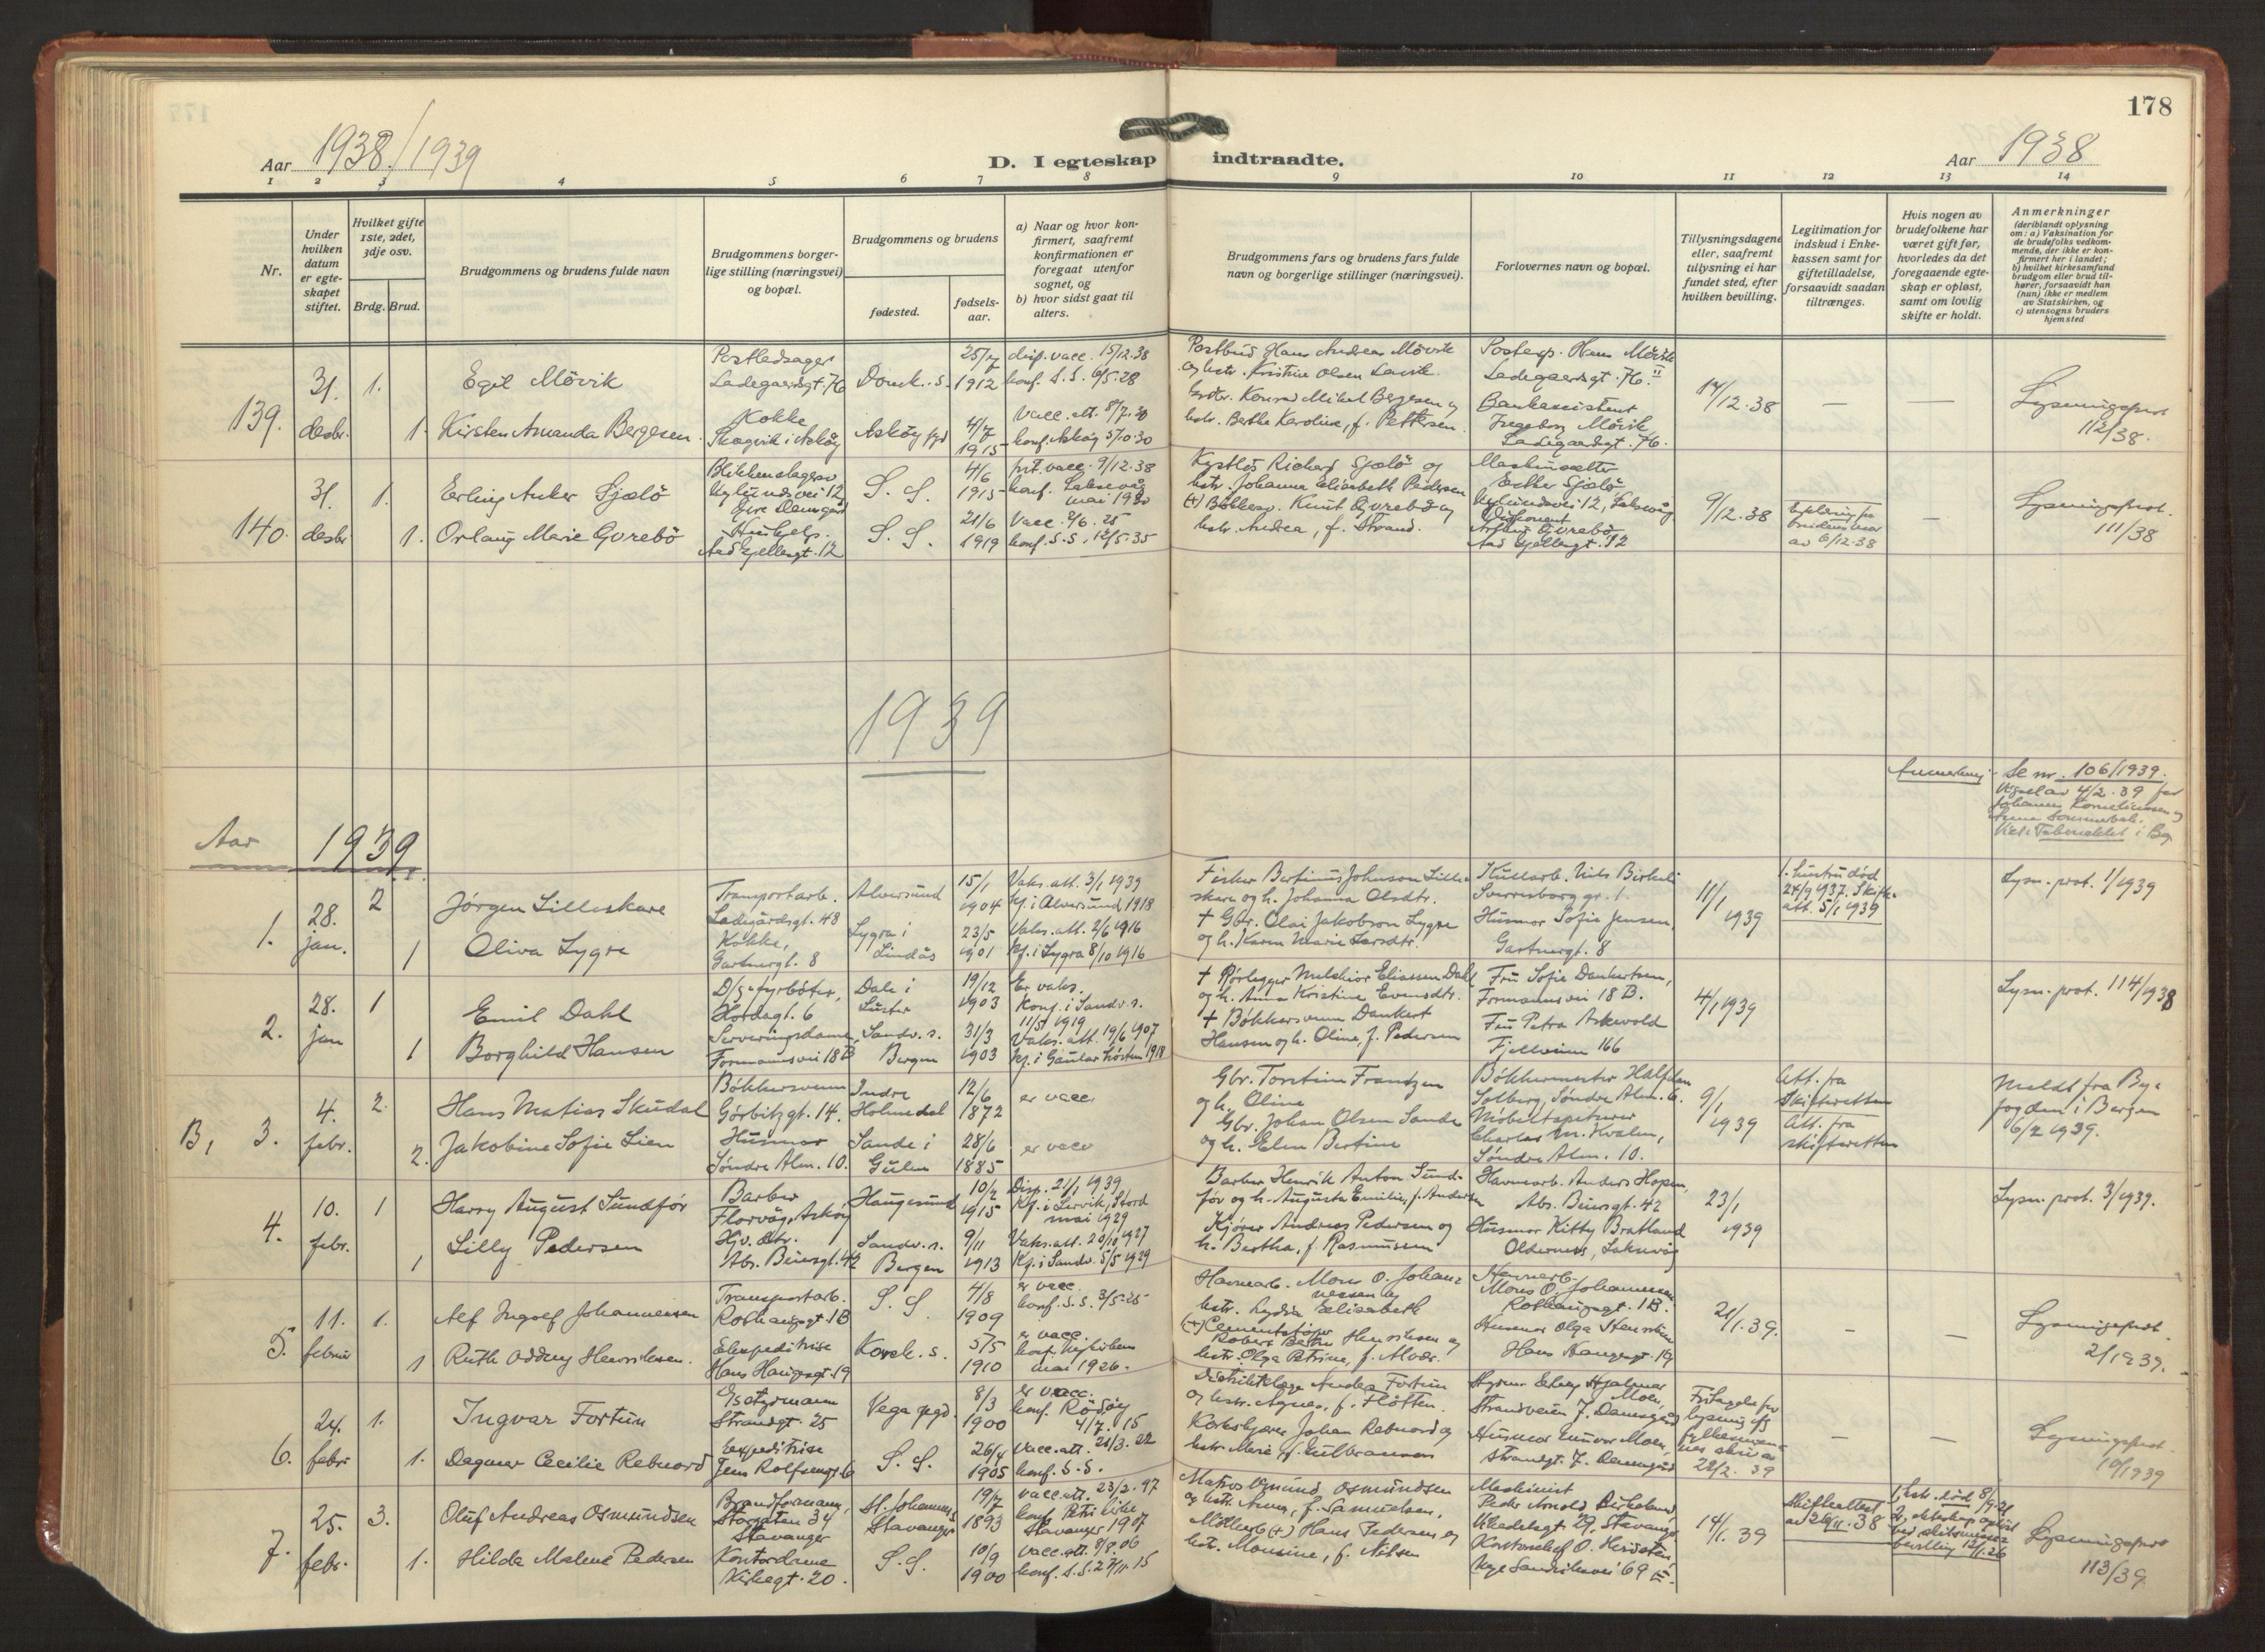 178
Aar 1938/1939
D. I egteskap indtraadte.
Aar 1938
1 2 3 4 5 6 7 8 9 10 11 12 13 14
Nr.
Under hvilken datum er egte-skapet stiftet.
Hvilket gifte 1ste, 2det, 3dje osv.
Brdg. Brud.
Brudgommens og brudens fulde navn
Brudgommens borger-lige stilling (næringsvei) og bopæl.
Brudgommens og brudens
fødested.
fødsels-aar.
a) Naar og hvor kon-firmert, saafremt konfirmationen er foregaat utenfor sognet, og
b) hvor sidst gaat til alters.
Brudgommens fars og brudens fars fulde navn og borgerlige stillinger (næringsvei).
Forlovernes navn og bopæl.
Tillysningsdagene eller, saafremt tillysning ei har fundet sted, efter hvilken bevilling.
Legitimation for indskud i Enke-kassen samt for giftetilladelse, forsaavidt saadan tiltrænges.
Hvis nogen av brudefolkene har været gift før, hvorledes da det foregaaende egte-skap er opløst, samt om lovlig skifte er holdt.
Anmerkninger (deriblandt oplysning om: a) Vaksination for de brudefolks vedkom-mende, der ikke er kon-firmert her i landet; b) hvilket kirkesamfund brudgom eller brud til-hører, forsaavidt han (hun) ikke er medlem av Statskirken, og c) utensogns bruders hjemsted
139. 31. desbr.
1. Egil Mövik
Ladegaardsgt. 76
Domk. s.
25/7 1912
disp. vacc. 15/12.38
konf. S.S. 6/5.28
Postbud Hans Andreas Mövik
og hstr. Kristine Olsen Lavik.
Postexp. Hans Mövik
Ladegaardsgt. 76 II
17/12.38
— —
Lysningsprot. 112/38.
1. Kirsten Amanda Bergesen.
Kokke
Skagvik i Asköy
Asköy pgd
4/7 1915
Vacc. att. 8/7.30
konf. Asköy 5/10.30
Konrad Mikal Bergesen og
hstr. Berthe Karoline, f. Pettersen.
Bankassistent
Ingeborg Mövik
Ladegaardsgt. 76.
140. 31. desbr
1. Erling Anker Sjælö
Blikkenslager
Nylundsvei 12
Gvre Damsgård
S. S.
4/6 1915
prt. vacc. 9/12.38
konf. Laksevåg mai 1930
Richard Sjælö og
hstr. Johanna Elisabeth Pedersen
Esther Sjælö
Nylundsvei 12, Laksevåg
9/12.38
av 6/12.38
—
Lysningsprot. 111/38
1. Orlaug Marie Gvrebö
Aad Gjellesgt. 12
S. S.
21/6 1919
Vacc. 2/6. 25
konf. S.S. 12/5.35
(+) Bökkersv. Knut Gvrebö og
hstr. Andrea, f. Strand.
Aad Gjellesgt. 12
1939
Anmerkning: Se nr. 106/1939.
Vigsel av 4/2.39 for
Johannes Korneliussen og
Anna Sommerbak.
Kirk. Tabernaklet i Bg.
Aar 1939
1. 28. jan.
2 Jørgen Lilleskare
Transportarb.
Ladegårdsgt. 48
Alversund
15/1 1904
Vaks. att. 3/1 1939
Kf. i Alversund 1918
Fisker Bertinus Johnson Lille-
skare og h. Johanna Olsdtr.
Kullarb. Nils Birkeli
Sverresborg gr. 1.
11/1 1939
1. hustru død
24/9 1937. Skifte-
att. 5/1 1939
Lysn. prot. 1/1939
1 Oliva Lygre
Kokke,
Gartnergt. 8
Lygra i Lindås
23/5 1901
Vaks. att. 2/6 1916
Kf. i Lygra 8/10 1916
+ Gbr. Olai Jakobson Lygre
og h. Karen Marie Larsdtr.
Husmor Sofie Jensen,
Gartnergt. 8
2. 28. jan
1 Emil Dahl
D/s-fyrbøter,
Hordagt. 6
Dale i Luster
19/12 1903
Er vaks.
Konf. i Sandv. s.
11/5 1919
+ Rørlegger Melchior Eliassen Dahl
og h. Anna Kristine Evensdtr.
Fru Sofie Dankertsen,
Formannsvei 18 B.
4/1 1939
Lysn. prot. 114/1938
1 Borghild Hansen
Serveringsdame,
Formannsvei 18 B
Sandv. s. Bergen
31/3 1903
Vaks. att. 19/6 1907
Kf. i Gaular høsten 1918
+ Bøkkersvenn Dankert
Hansen og h. Oline, f. Pedersen
Fru Petra Askevold
Fjellveien 166
B, 3. 4. febr.
2. Hans Matias Skudal
Bøkkersvenn
Gørbitzgt. 14.
Indre Holmedal
12/6 1872
er vacc.
Gbr. Torstein Frantzen
og h. Oline
Bøkkermester Halfdan
Solberg, Søndre Alm. 6.
9/1 1939
Att. fra Skifteretten
Meldt fra By-
fogden i Bergen
6/2 1939.
2. Jakobine Sofie Lien
Husmor
Søndre Alm. 10.
Sande i Gulen
28/6 1885
er vacc
Gbr. Johan Olsen Sande
og h. Elen Bertine
Møbeltapetserer
Charles M. Kvalen,
Søndre Alm. 10.
Att. fra skifteretten
4. 10. febr.
1 Harry August Sundfør
Barber
Florvåg, Askøy
Haugesund
10/2 1915
Disp. 21/1 1939
Kf. i Lervik, Stord
mai 1929
Barber Henrik Anton Sund-
før og h. Augusta Emilie, f. Andersen
Havnearb. Anders Hopen,
Abs. Beiersgt. 42
23/1 1939
Lysn. prot. 3/1939.
1 Lilly Pedersen
Hjv. dtr.
Abs. Beiersgt. 42
Sandv. s. Bergen
9/11 1913
Vaks. att. 20/10 1927
Kf. i Sandv. 5/5 1929
Kjører Andreas Pedersen og
h. Bertha, f. Rasmussen
Husmor Kitty Bratland
Oldernes, Laksevåg
5. 11. februar
1. Alf Ingolf Johannessen
Transportarb.
Rothaugsgt. 1B
S. S.
4/8 1909
er vacc.
konf. S.S. 3/5.25
Havnearb. Mons O. Johan-
nessen og
hstr. Lydia Elisabeth
Havnearb.
Mons O. Johannessen
Rothaugsgt. 1B.
21/1.39.
— —
Lysningsprot. 2/1939.
1 Ruth Oddny Henriksen.
Ekspeditrise
Hans Haugesgt. 19
Korsk. s.
5/5 1910
er vacc.
mai 1926.
Robert Henriksen og
hstr. Olga Petrine, f. Alvær.
Husmor Olga Henriksen
Hans Haugesgt. 19
6. 24. febr.
1. Ingvar Fortun
Strandgt. 25
Vega pgd.
8/3 1900
er vacc.
konf. Rödöy
4/7.15
Distriktslæge Anders Fortun
og hstr. Agnes, f. Flötten.
Hjalmar Moen,
Strandveien 7. Damsgård
Fritagelse for
lysning
22/2. 39
— —
Lysningsprot. 10/1939
1. Dagmar Cecilie Rebnord
Expeditrise
Jens Rolfsensgt. 6
S. S.
26/4 1905
Vacc. att. 21/3.22
konf. S.S.
Johan Rebnord og
hstr. Marie f. Gulbransen
Husmor Gunvor Moen,
Strandgt. 7. Damsgård
7. 25. febr.
3. Oluf Andreas Osmundsen
Brandformann,
Storgaten 34
Stavanger
St. Johannes Stavanger
19/7 1893
Vacc. att. 23/2.97
konf. Petri kirke
Stavanger 1907
Matros Ogmund Osmundsen
og hstr. Anna, f. Samuelsen.
Maskinist
Peder Arnold Birkeland,
Stavanger
14/1. 39
Skifteattest
av 26/11.38
1. hstr. död 8/9.21
2. ekteskap oplöst
ved skilsmisse-
bevilling 12/1.26
Lysningsprot 113/39
1. Hilda Malene Pedersen
Kontordame
Kirkegt. 20.
S. S.
10/9 1900
Vacc. att. 8/8.06
konf. S.S. 27/11.15
(+) Hans Pedersen og
hstr. Monsine, f. Nilsen
Nye Sandviksvei 69